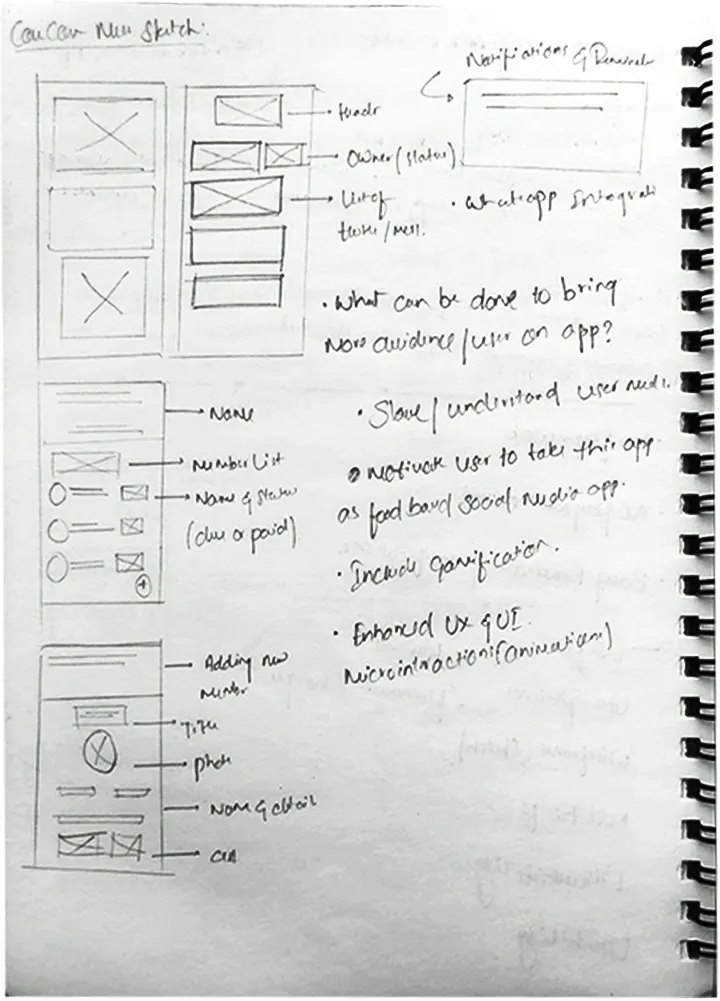 CanCan New Sketch:
Notifications &
Header
Owner (status)
List of
• Whatsapp Integrati
• What can be done to bring
More Auidence/user on app?
• Slove/understand user needs.
• Motivate user to take this app
as food based Social Media app.
• Include Gamification.
• Enhanced UX & UI
Microintractions (animations)
Name
Member List
Name & Status
(due or paid)
Adding new
Member
Title
photo
Name & detail
CTA